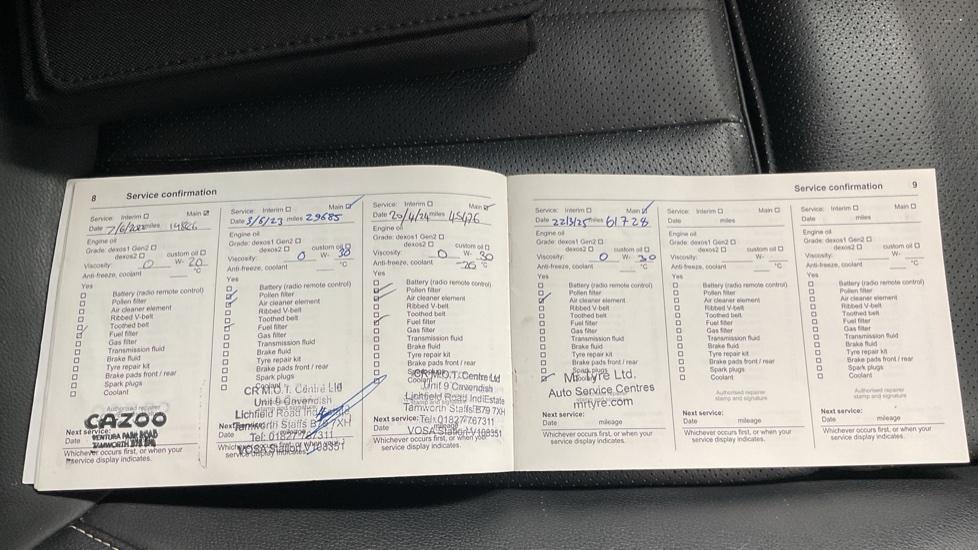 8 Service confirmation
Service: Interim Main
Date 7/6/2022 miles 14826
Engine oil
Grade: dexos1 Gen2
dexos2 custom oil
Viscosity: 0 W- 20
Anti-freeze, coolant °C
Yes
Battery (radio remote control)
Pollen filter
Air cleaner element
Ribbed V-belt
Toothed belt
Fuel filter
Gas filter
Transmission fluid
Brake fluid
Tyre repair kit
Brake pads front / rear
Spark plugs
Coolant
CAZOO
VENTURA PARK ROAD
TAMWORTH
Next service:
Date
Whichever occurs first, or when your
service display indicates.
Service: Interim Main
Date 3/5/23 miles 29685
Engine oil
Grade: dexos1 Gen2
dexos2 custom oil
Viscosity: 0 W- 30
Anti-freeze, coolant °C
Yes
Battery (radio remote control)
Pollen filter
Air cleaner element
Ribbed V-belt
Toothed belt
Fuel filter
Gas filter
Transmission fluid
Brake fluid
Tyre repair kit
Brake pads front / rear
Spark plugs
Coolant
CR M.O.T. Centre Ltd
Unit 9 Cavendish
Lichfield Road Ind Estate
Tamworth Staffs B79 7XH
Tel: 01827 767311
VOSA Station V108351
Next service:
Date
Whichever occurs first, or when your
service display indicates.
Service: Interim Main
Date 20/4/24 miles 45476
Engine oil
Grade: dexos1 Gen2
dexos2 custom oil
Viscosity: 0 W- 30
Anti-freeze, coolant -26 °C
Yes
Battery (radio remote control)
Pollen filter
Air cleaner element
Ribbed V-belt
Toothed belt
Fuel filter
Gas filter
Transmission fluid
Brake fluid
Tyre repair kit
Brake pads front / rear
Spark plugs
Coolant
CR M.O.T. Centre Ltd
Unit 9 Cavendish
Lichfield Road Ind Estate
Tamworth Staffs B79 7XH
Tel: 01827 767311
VOSA Station V108351
Next service:
Date mileage
Whichever occurs first, or when your
service display indicates.
Service confirmation 9
Service: Interim Main
Date 22/3/25 miles 61728
Engine oil
Grade: dexos1 Gen2
dexos2 custom oil
Viscosity: 0 W- 30
Anti-freeze, coolant °C
Yes
Battery (radio remote control)
Pollen filter
Air cleaner element
Ribbed V-belt
Toothed belt
Fuel filter
Gas filter
Transmission fluid
Brake fluid
Tyre repair kit
Brake pads front / rear
Spark plugs
Coolant
Mr Tyre Ltd.
Auto Service Centres
mrtyre.com
Next service:
Date mileage
Whichever occurs first, or when your
service display indicates.
Service: Interim Main
Date miles
Engine oil
Grade: dexos1 Gen2
dexos2 custom oil
Viscosity: W-
Anti-freeze, coolant °C
Yes
Battery (radio remote control)
Pollen filter
Air cleaner element
Ribbed V-belt
Toothed belt
Fuel filter
Gas filter
Transmission fluid
Brake fluid
Tyre repair kit
Brake pads front / rear
Spark plugs
Coolant
Authorised repairer
stamp and signature
Next service:
Date mileage
Whichever occurs first, or when your
service display indicates.
Service: Interim Main
Date miles
Engine oil
Grade: dexos1 Gen2
dexos2 custom oil
Viscosity: W-
Anti-freeze, coolant °C
Yes
Battery (radio remote control)
Pollen filter
Air cleaner element
Ribbed V-belt
Toothed belt
Fuel filter
Gas filter
Transmission fluid
Brake fluid
Tyre repair kit
Brake pads front / rear
Spark plugs
Coolant
Authorised repairer
stamp and signature
Next service:
Date mileage
Whichever occurs first, or when your
service display indicates.